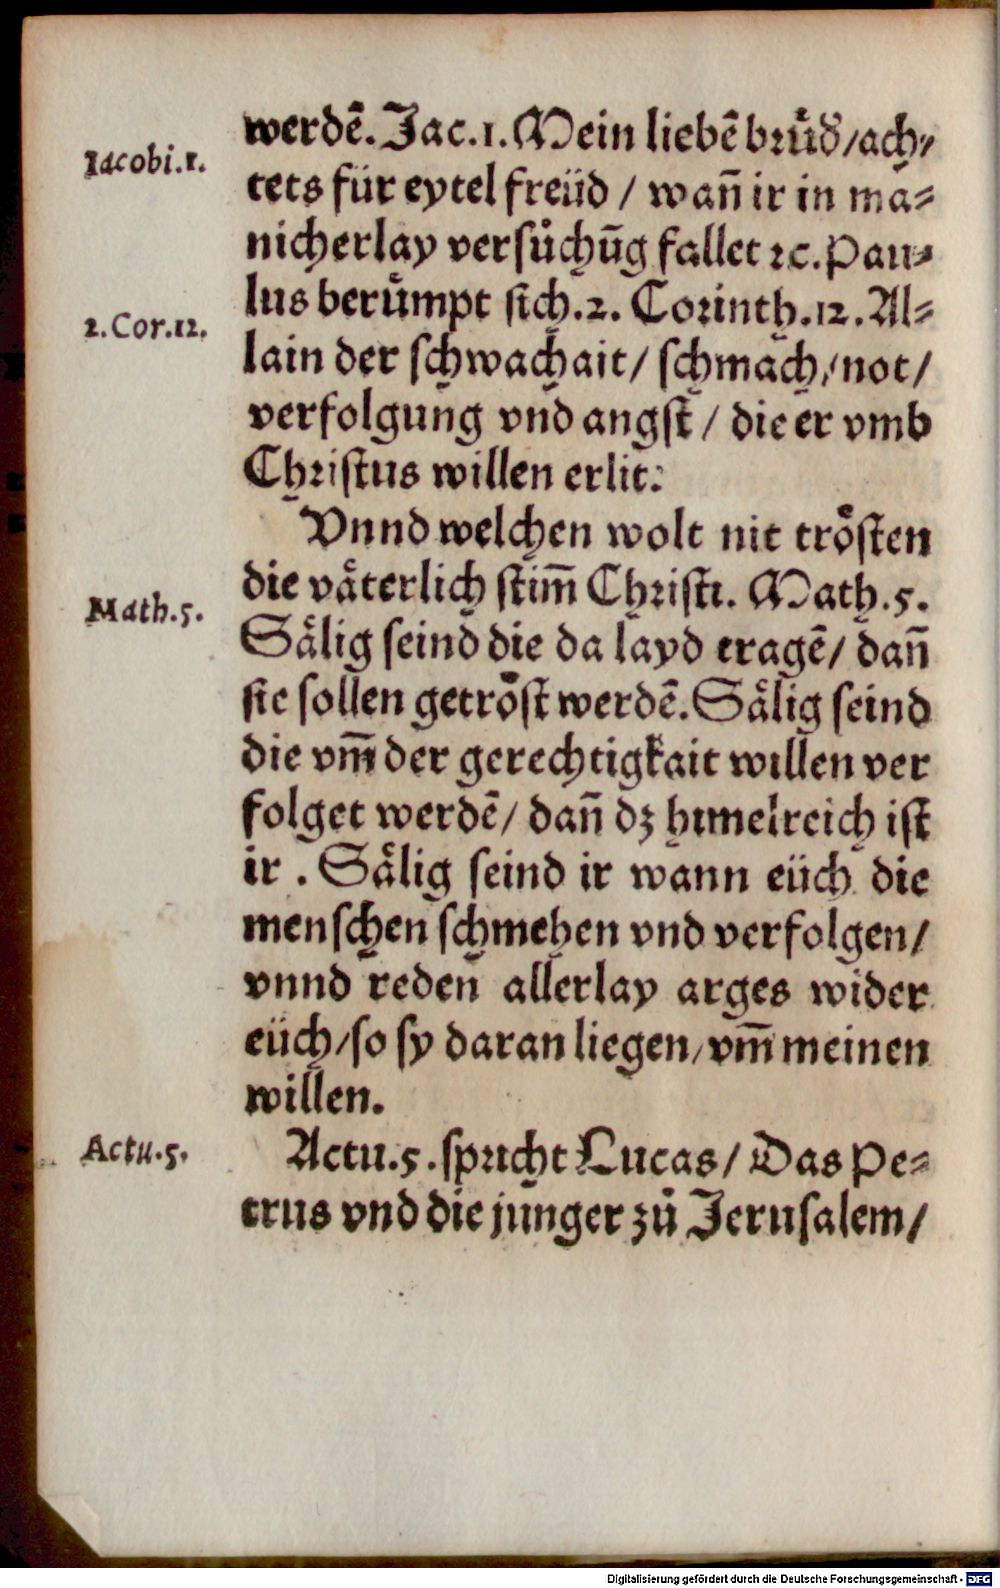 werdẽ. Jac. 1. Mein liebẽ brüd̕/ach⸗
Iacobi.1.
tets für eytel freüd / wañ ir in ma⸗
nicherlay versůchũg fallet ⁊c. Pau⸗
lus berůmpt sich. 2. Corinth. 12. Al⸗
2.Cor.12.
lain der schwachait/ schmach/ not/
verfolgung vnd angst / die er vmb
Christus willen erlit:
Vnnd welchen wolt nit trösten
die väterlich stim̃ Christi. Math. 5.
Math.5.
Sälig seind die da layd tragẽ/ dañ
sie sollen getröst werdẽ. Sälig seind
die vm̃ der gerechtigkait willen ver
folget werdẽ/ dañ dz himelreich ist
ir . Sälig seind ir wann eüch die
menschen schmehen vnd verfolgen/
vnnd reden allerlay arges wider
eüch/so sy daran liegen/vm̃ meinen
willen.
Actu. 5. spricht Lucas/ Das Pe⸗
Actu.5.
trus vnd die junger zů Jerusalem/
Digitalisierung gefördert durch die Deutsche Forschungsgemeinschaft - DFG